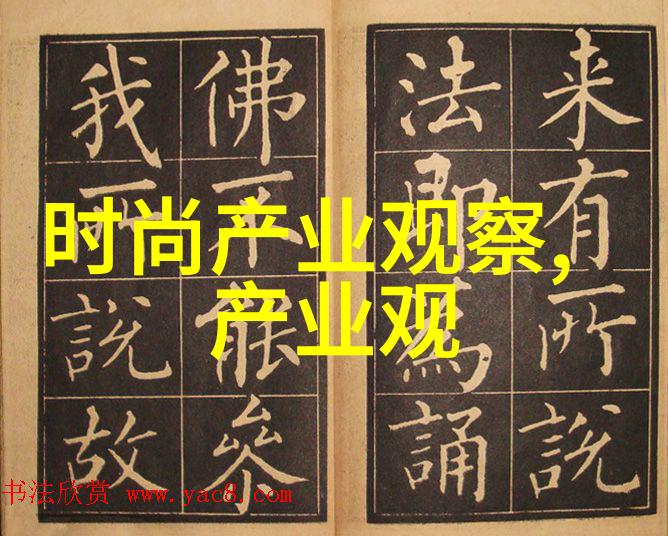 来有所說
法即馬誦
佛不能叅
我所說故
时尚产业观察,
产业观
书法欣赏 www.yac8.com